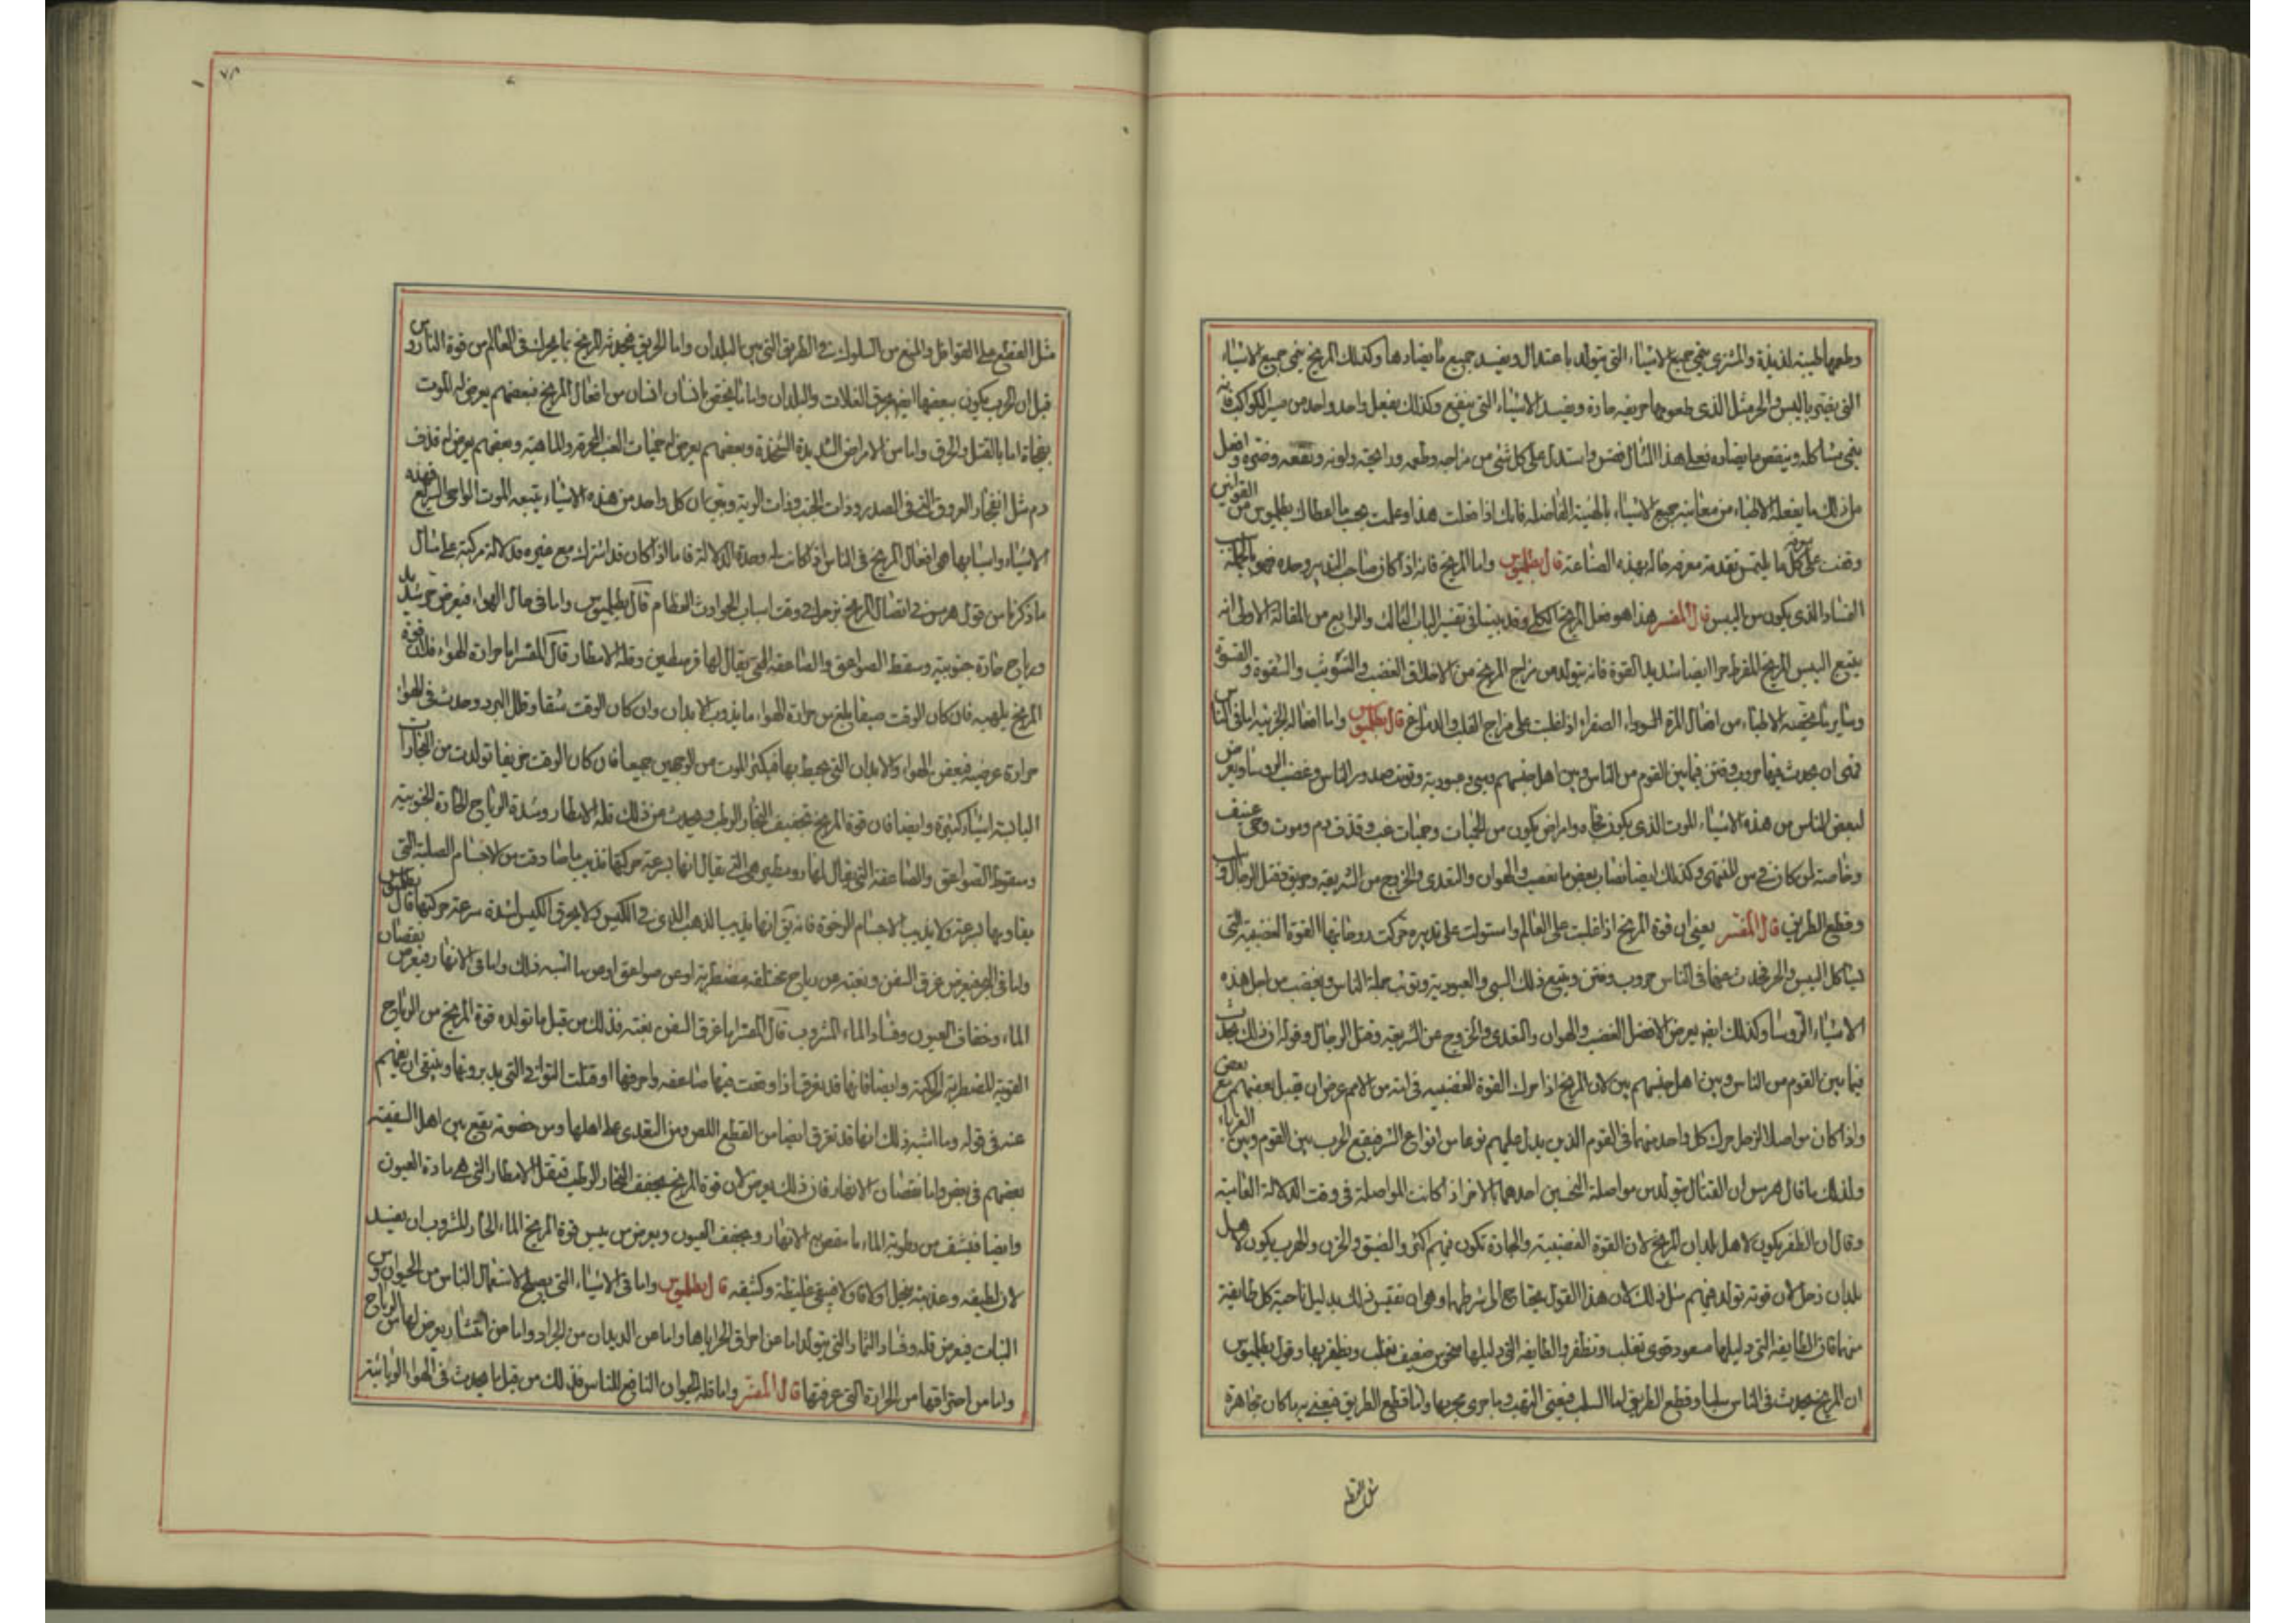 وطعمها طيبة لذيذة والمشترى ينمي جميع الاشياء التي يتولد باعتدال ويفسد جميع ما يضادها وكذلك المريخ ينمي جميع الاشياء
التي يغتذي باليبس والحر مثل الذي طعومها حريفه حادة ويفسد الاشياء التي ينتفع وكذلك يفعل واحد واحد من سير الكواكب فانه
ينمي مشاكله وينقص ما يضاده فعلى هذا المثال فقس واستدل على كل شئ من مزاجه وطعمه ورائحته ولونه ونفعه وضره وافعل
من ذلك ما يفعله الاطباء من معاينة جميع الاشياء بالهيئة الفاضله فانك اذا فعلت هذا وعملت بحسب ما اعطاك بطلميوس من القوانين
وقفت على كل ما يلتمس تقدمة معرفه حاله بهذه الصناعة قال بطلميوس واما المريخ فانه اذا كان صاحب التدبير وحده فهو بالجملة
الفساد الذي يكون من اليبس قال المفسر هذا هو فعل المريخ الكلي وقد بينا في تفسير الباب الثالث والرابع من المقالة الاولى انه
يتبع اليبس المريخ المفرط حرا ايضا شديد القوة فانه يتولد من مزاج المريخ من الاخلاق الغضب والتوثب والشقوة والقسوة
وساير ما يخصه الاطباء من افعال المرة السوداء الصفراء اذا غلبت على مزاج القلب والدماغ قال بطلميوس واما افعاله الجزئية اما في الناس
فهي ان يحدث فيها حروب وفتن فيما بين القوم من الناس وبين اهل جنسهم وسبي وعبودية وتوثب صدور الناس وغضب الروسا ويعرض
لبعض الناس من هذه الاشياء الموت الذي يكون فجاه وامراض يكون من الحميات وحميات غب وقذف دم وموت وحي عنيف
وخاصة لمن كان في سن المنتهى وكذلك ايضا لبعض ما يغضب والهوان والتعدي والخروج من الشريعه وحريق وقتل الرجال وسلب
وقطع الطريق قال المفسر يعني ان قوة المريخ اذا غلبت على العالم واستولت على تدبيره حركت روحانيتها القوة الغضبية التي
تشاكل اليبس والحر فيحدث عنها في الناس حروب وفتن ويتبع ذلك السبي والعبودية وتوثب جملة الناس ويغضب من اجل هذه
الاشياء الروسا وكذلك ايضا يعرض لافضل الغضب والهوان والتعدي والخروج عن الشريعه وقتل الرجال وقوله ان ذلك يحدث
فيما بين القوم من الناس وبين اهل جنسهم بين لان المريخ اذا حرك القوة الغضبيه في امة من الامم عرض ان يقتل بعضهم مع بعض
واذا كان مواصلا لزحل حرك كل واحد منهما في القوم الذين يدل عليهم نوعا من انواع الشر فيقع الحرب بين القوم وبين الغرباء
ولذلك ما قال هرمس ان القتال يتولد من مواصلة النحسين احدهما بالاخر اذا كانت المواصلة في وقت الدلالة الغالبة
وقال ان الظفر يكون لاهل بلدان المريخ لان القوة الغضبية والحادة تكون فيهم اكثر والضيق والحزن والهرب يكون لاهل
بلدان زحل لان قوته تولد فيهم مثل ذلك لان هذا القول يحتاج الى شرط ما وهو ان تقيس ذلك بدليل ناحية كل طايفة
منهما فان الطايفة التي دليلها مسعود قوي تغلب وتظفر والطايفة التي دليلها منحوس ضعيف تغلب ويظفر بها وقول بطلميوس
ان المريخ يحدث في الناس سلبا وقطع الطريق اما السلب فيعني النهب وما جرى مجريها واما قطع الطريق فيعني به ما كان مجاهرة
مثل القطع
٧٨
مثل القطع على القوافل والمنع من السلوك في الطريق التي بين البلدان واما الحريق فيحدثه المريخ بما يحرك في العالم من قوة النار و
قبل ان الحرب يكون بعضها ايضا يحرق الغلات والبلدان واما ما يختص بانسان انسان من افعال المريخ فبعضهم يعرض له الموت
فجاة اما بالقتل والحرق واما من الامراض الشديدة الحادة وبعضهم يعرض له حميات الغب المحرقه والدائمة وبعضهم يعرض له قذف
دم مثل انفجار العروق التي في الصدر وذات الجنب وذات الرية وبين ان كل واحد من هذه الاشياء يتبعه الموت الواحي السريع فهذه
الاشياء واشباهها هي افعال المريخ في الناس اذا كانت له وحده الدلالة فاما اذا كان قد اشترك مع غيره فدلالة مركبة على مثال
ما ذكرنا من قول هرمس في اتصال المريخ بزحل في وقت اسباب الحوادث العظام قال بطلميوس واما في حال الهواء فيعرض حر شديد
ورياح حادة جنوبية وسقط الصواعق والصاعقه التي يقال لها فرسطير وقلة الامطار قال المفسر اما حرارة الهواء فلان قوة
المريخ يلهبه فان كان الوقت صيفا بلغ من حرارة الهواء ما يذوب الابدان وان كان الوقت شتاء وقل البرد وحدث في الهواء
حرارة عرضية فيعفن الهواء والابدان التي يحيط بها فيكثر الموت من الوجهين جميعا فان كان الوقت خريفا تولدت من البخارات
اليابسة اشياء كثيرة وايضا فان قوة المريخ تجفف البخار الرطب ويحدث من ذلك قلة الامطار وشدة الرياح الحادة الجنوبية
وسقوط الصواعق والصاعقه التي يقال لها روسطير هي التي يقال انها لسرعة حركتها تذيب ما صادفت من الاجسام الصلبة التي
يقاومها لسرعة ولا يذيب الاجسام الرخوة فانه يق انها يذيب الذهب الذي في الكيس ولا يحرق الكيس لشدة سرعة حركتها قال بطلميوس
واما في البحر فيعرض غرق السفن وبغتة من رياح مختلفه مضطربة او من صواعق او من ما اشبه ذلك واما في الانهار فيعرض نقصان
الماء وجفاف العيون وفساد الماء المشروب قال المفسر اما غرق السفن بغتة فذلك من قبل ما تولده قوة المريخ من الرياح
القوية المضطربة الحركة وايضا فانها قد تغرق اذا وقعت فيها صاعقه واحرقتها او قتلت النواتي التي يدبرونها وينبغي ان يفهم
عنه في قوله وما اشبه ذلك انها قد تغرق ايضا من القطع اللصوص التعدي على اهلها ومن خصومة يقع بين اهل السفينة
بعضهم في بعض واما نقصان الانهار فان ذلك يعرض لان قوة المريخ يجفف البخار الرطب فيقل الامطار التي هي مادة العيون
وايضا فينشف من رطوبة الماء ما ينقص به الانهار ويجفف العيون ويعرض من يبس قوة المريخ الماء الحار المشروب ان يفسد
لان لطيفه وعذبته ينحل اولا فاولا فيبقى غليظه وكثيفه قال بطلميوس واما في الاشياء التي يصلح لاستعمال الناس من الحيوان و
النبات فيعرض قله وفساد الثمار التي يتولد اما عن احراق الحر اياها واما من الديدان من الجراد واما من انتشار يعرض لها من الرياح
واما من احتراقها من الحرارة التي عرفتها قال المفسر واما قلة الحيوان النافع للناس فذلك من قبل ما يحدث في الهواء الوبائية